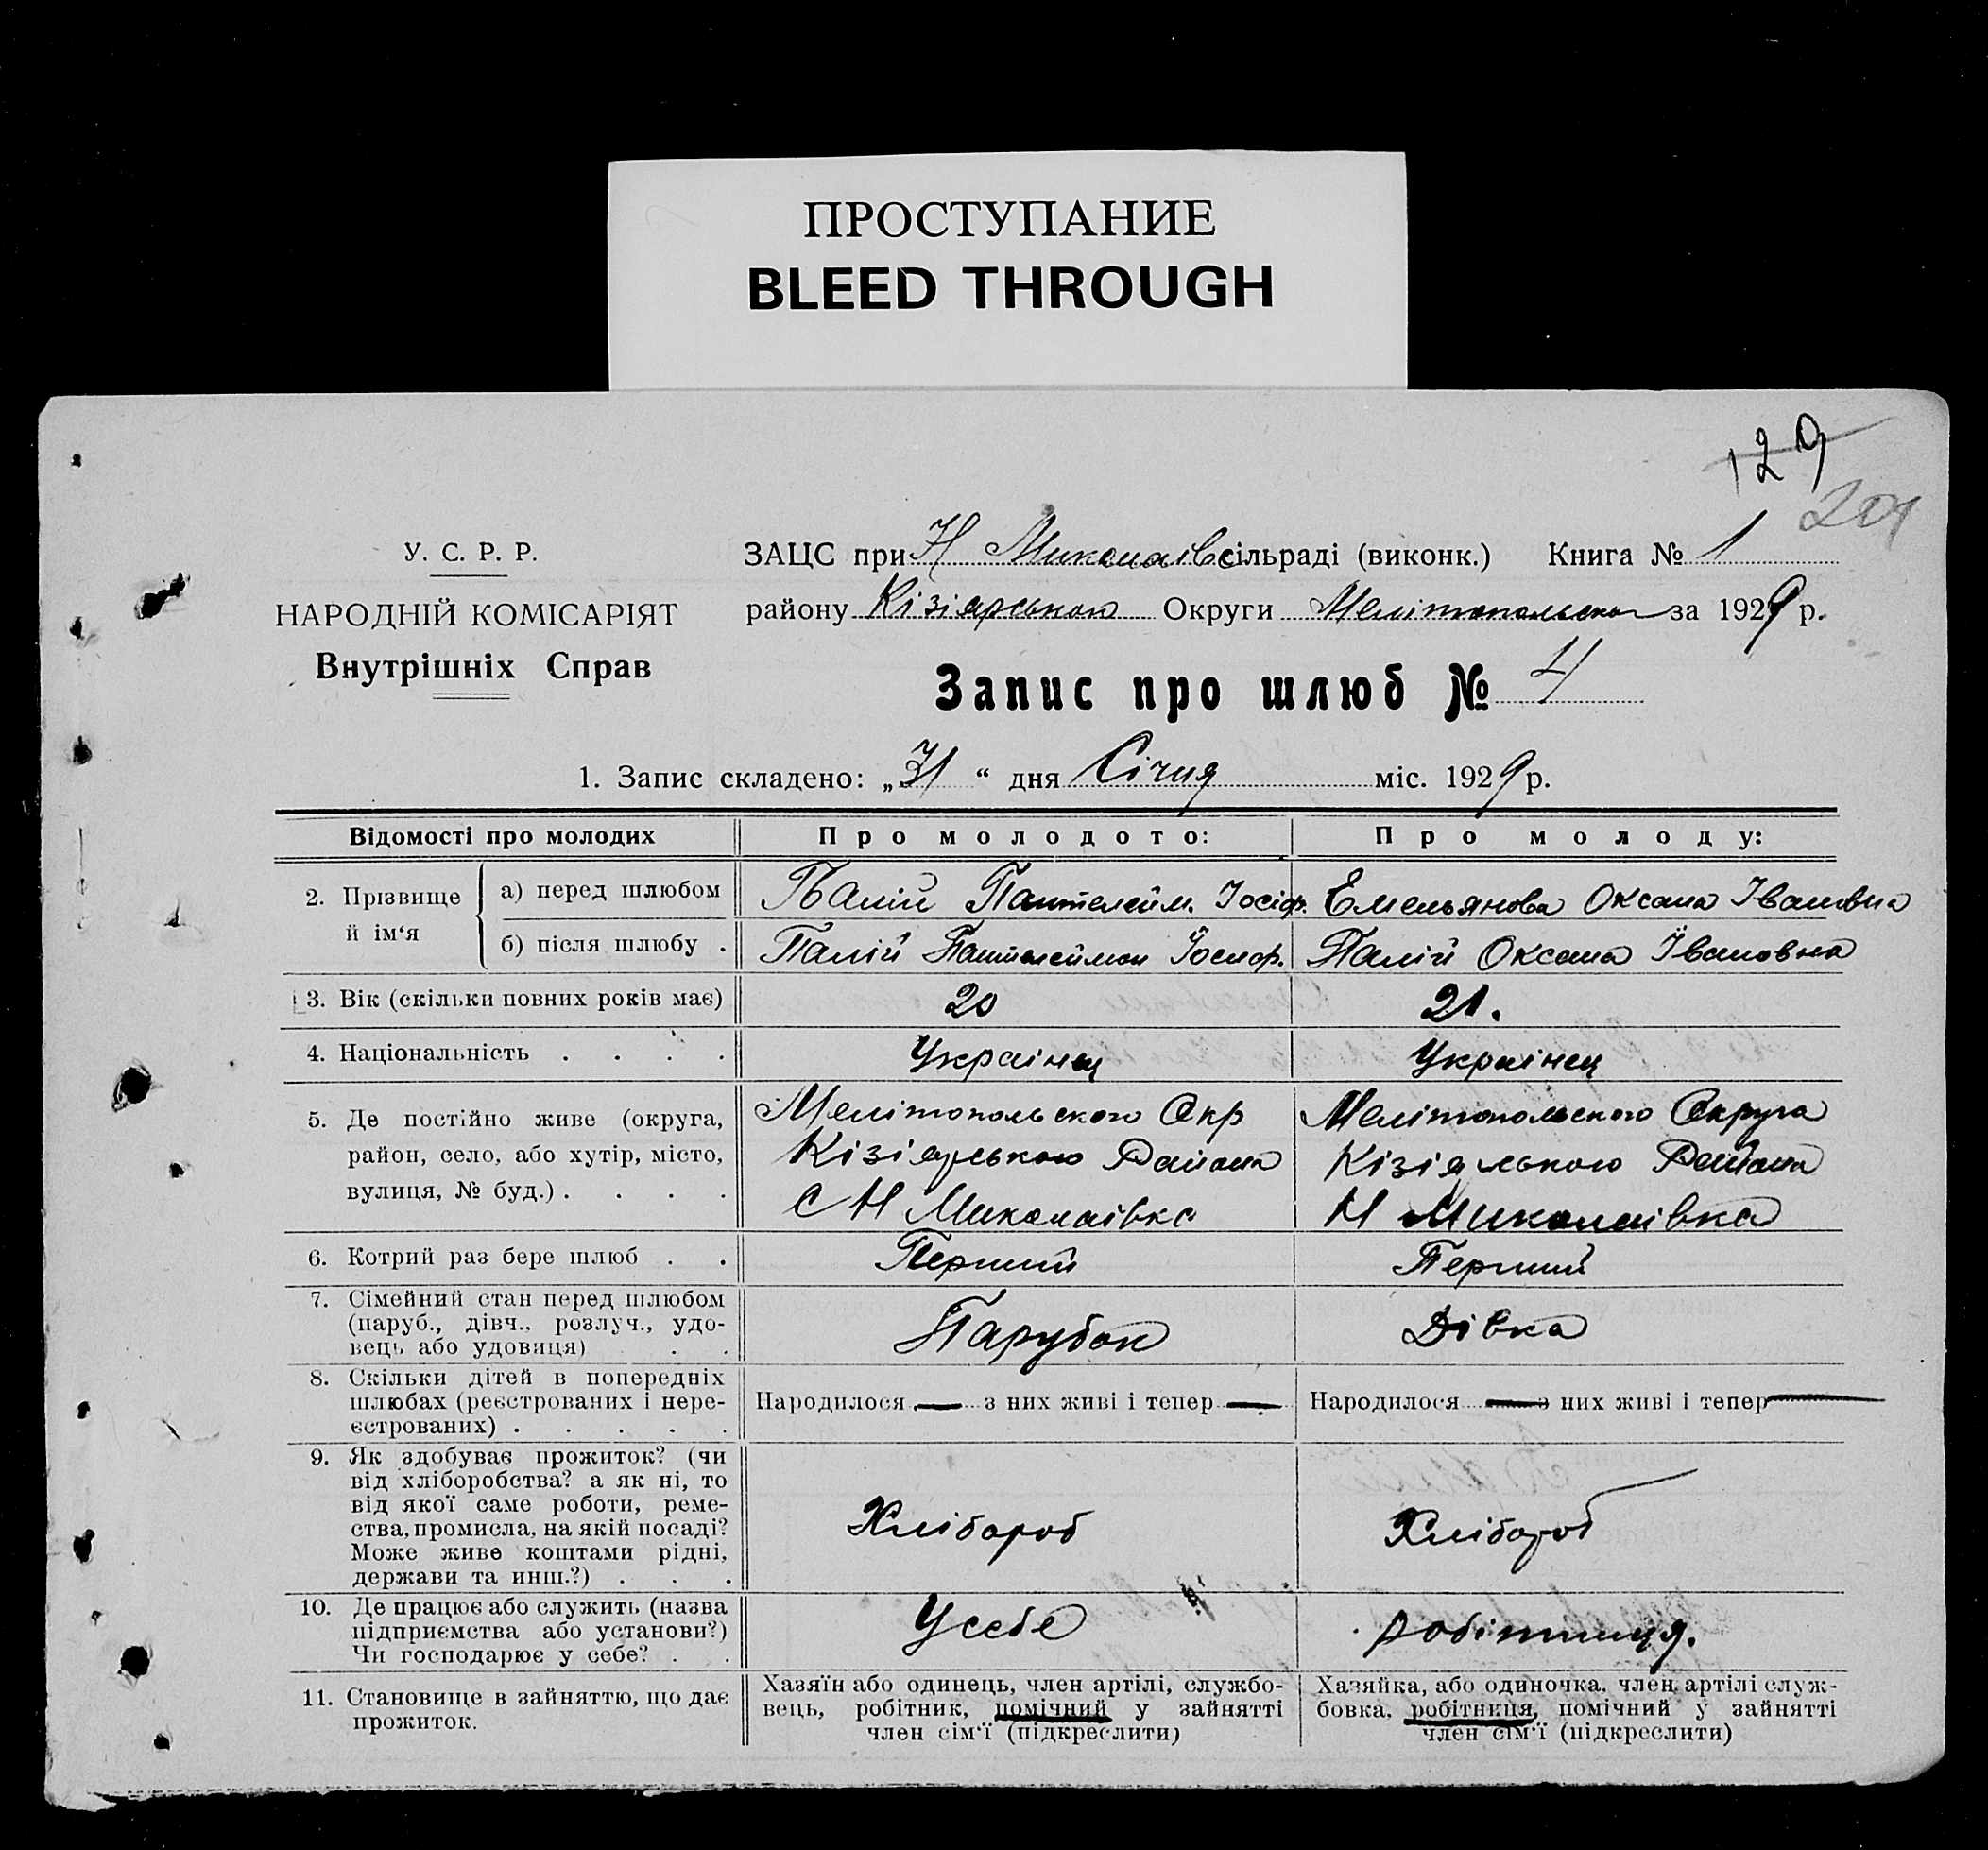 ПРОСТУПАНИЕ
BLEED THROUGH
129
201
У. С. Р. Р.
НАРОДНІЙ КОМІСАРІЯТ
Внутрішніх Справ
ЗАЦС при Н Миколаївс сільраді (виконк.) Книга № 1
району Кізіярського Округи Мелітопольської за 1929 р.
Запис про шлюб № 4
1. Запис складено: „31“ дня Січня міс. 1929 р.
Відомості про молодих
Про молодого:
Про молоду:
2. Прізвище й ім‘я
а) перед шлюбом
Палій Пантелейм. Іосіф.
Емельянова Оксана Івановна
б) після шлюбу .
Палій Пантелеймон Йосиф.
Палій Оксана Івановна
3. Вік (скільки повних років має)
20
21.
4. Національність . . . .
Украінец
Украінец
5. Де постійно живе (округа,
район, село, або хутір, місто,
вулиця, № буд.) . . . .
Мелітопольского Окр
Кізіярського Района
С Н Миколаівка
Мелітопольского Округа
Кізіярського Района
Н Миколаівка
6. Котрий раз бере шлюб . .
Перший
Перший
7. Сімейний стан перед шлюбом
(паруб., дівч., розлуч., удо-
вець або удовиця) . .
Парубок
Дівка
8. Скільки дітей в попередніх
шлюбах (реєстрованих і нере-
єстрованих) . . . . .
Народилося — з них живі і тепер —
Народилося — з них живі і тепер —
9. Як здобуває прожиток? (чи
від хліборобства? а як ні, то
від якої саме роботи, реме-
ства, промисла, на якій посаді?
Може живе коштами рідні,
держави та инш.?) . . .
Хлібороб
Хлібороб
10. Де працює або служить (назва
підприємства або установи?)
Чи господарює у себе? . .
Усебе
робітниця.
11. Становище в зайняттю, що дає
прожиток.
Хазяїн або одинець, член артілі, службо-
вець, робітник, помічний у зайнятті
член сім‘ї (підкреслити)
Хазяйка, або одиночка, член артілі служ-
бовка, робітниця, помічний у зайнятті
член сім‘ї (підкреслити)